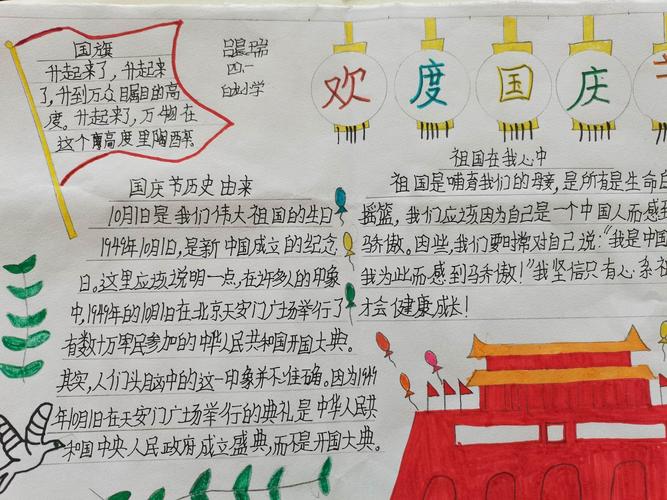 国旗
升起来了,升起来
了,升到万众瞩目的高
度。升起来了,万物在
这个高度里陶醉。
吕晨瑞
四.一
白小学
欢度国庆
国庆节历史由来
10月1日是我们伟大祖国的生日
1949年10月1日,是新中国成立的纪念
日。这里应该说明一点,在许多人的印象
中,1949年的10月1日在北京天安门广场举行了
有数十万军民参加的中华人民共和国开国大典。
其实,人们头脑中的这一印象并不准确。因为1949
年10月1日在天安门广场举行的典礼是中华人民共
和国中央人民政府成立盛典,而不是开国大典。
祖国在我心中
祖国是哺育我们的母亲,是所有是生命的
摇篮,我们应该因为自己是一个中国人而感到
骄傲。因些,我们要时常对自己说:"我是中国
我为此而感到骄傲!"我坚信只有心系祖
才会健康成长!